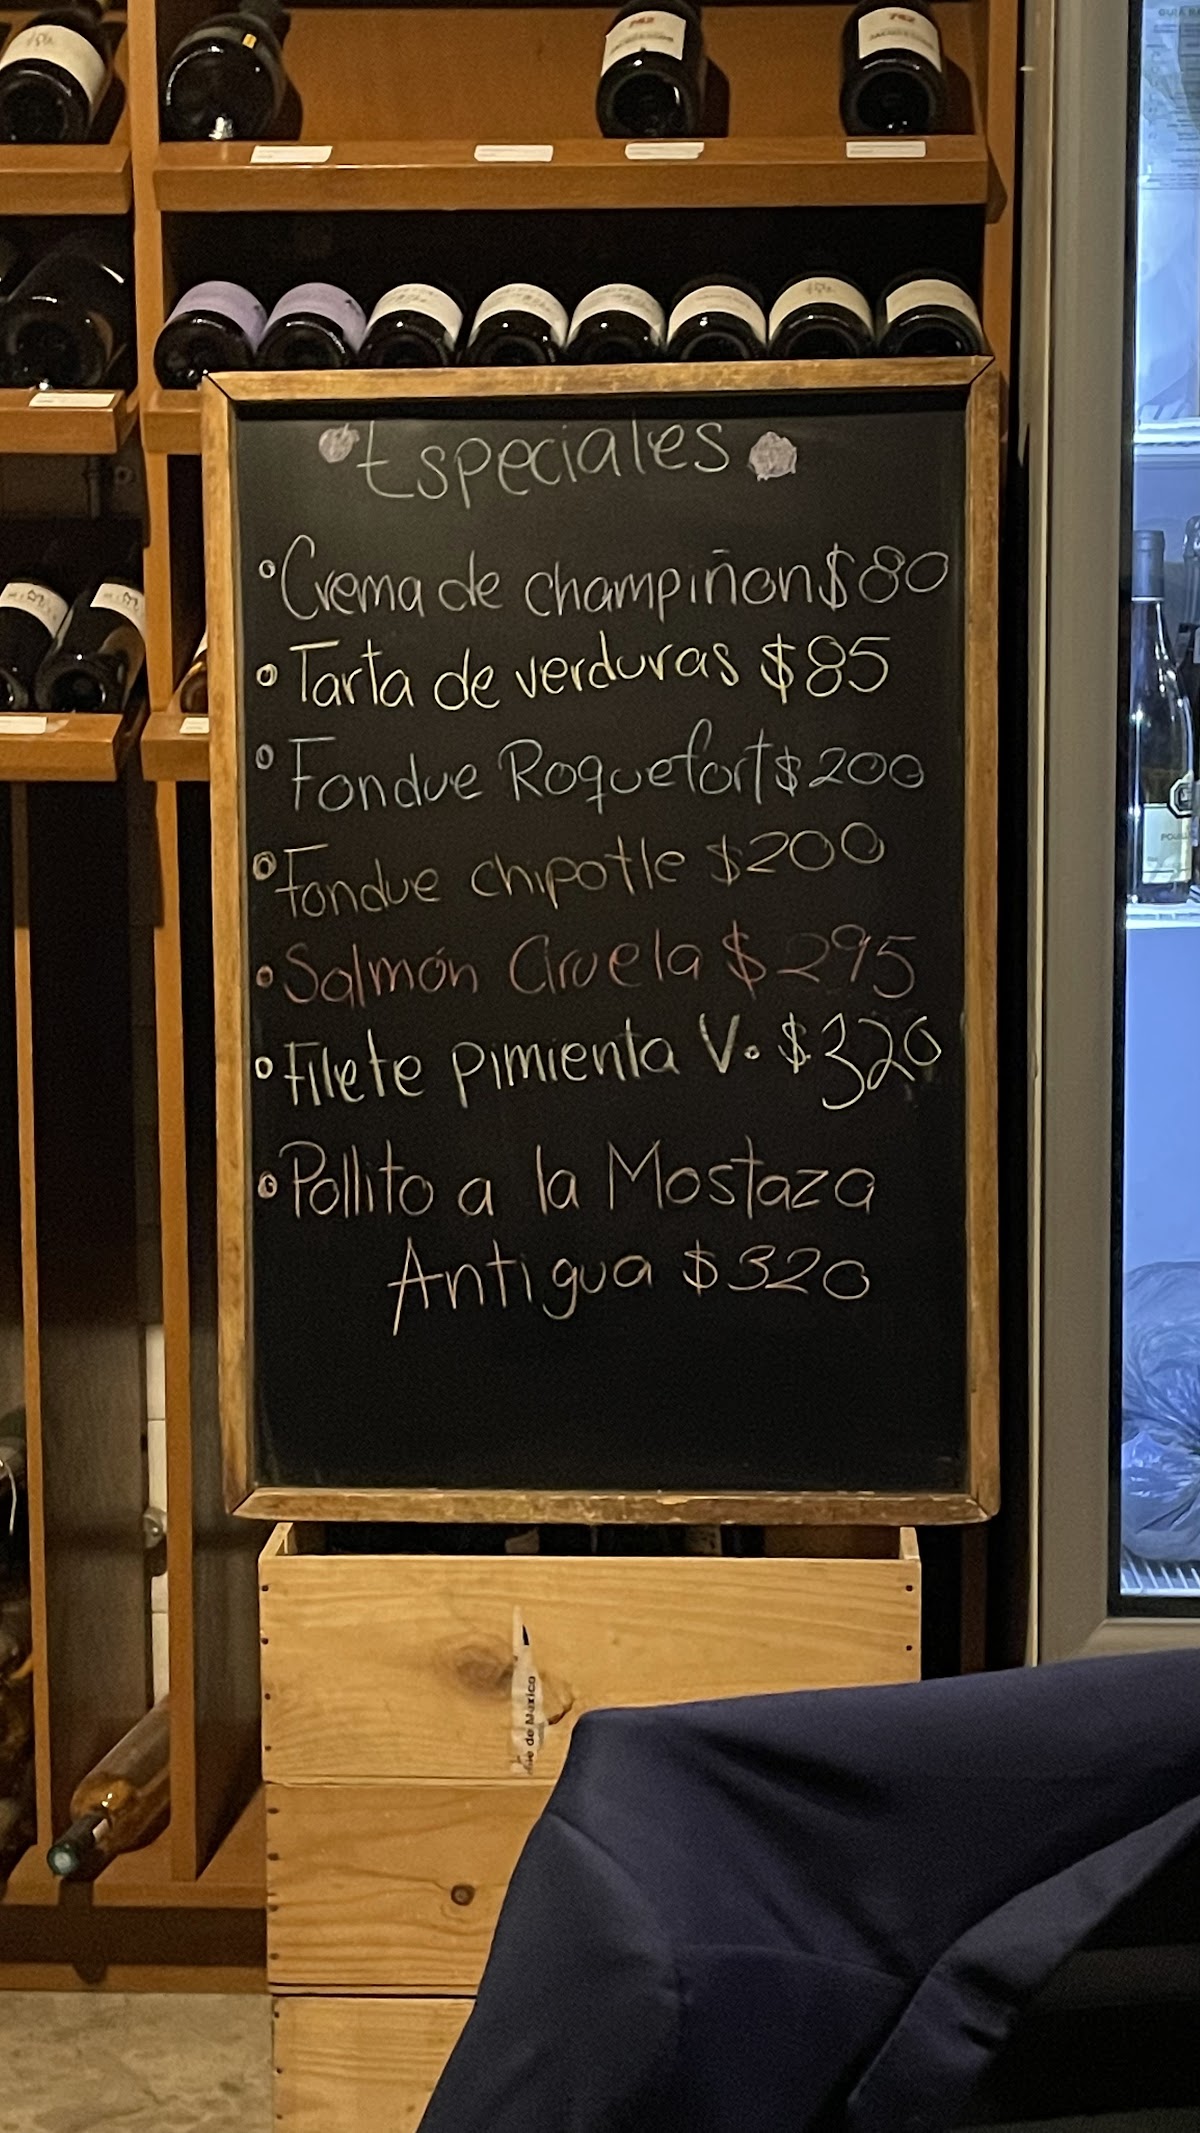 Especiales
Crema de champiñon $80
Tarta de verduras $85
Fondue Roquefort $200
Fondue chipotle $200
Salmón Ciruela $295
Filete pimienta V. $320
Pollito a la Mostaza
Antigua $320
de México